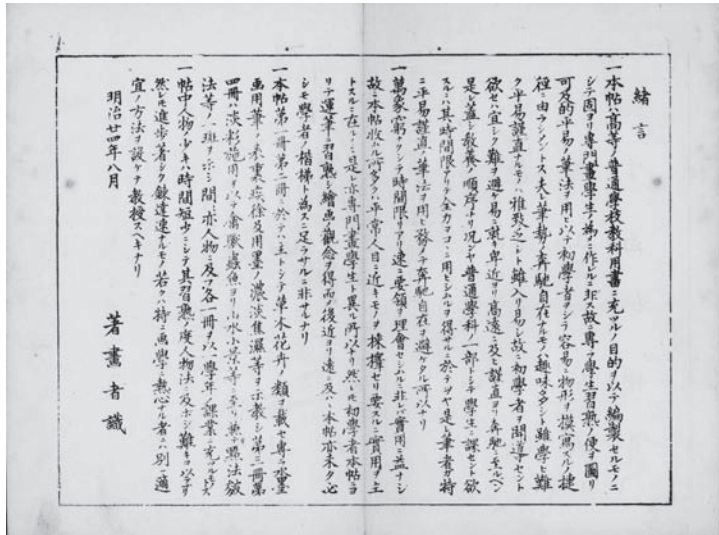 緒言
一本帖ハ高等ノ普通學校教科用書ニ充ツルノ目的ヲ以テ編製セルモノニ
シテ固ヨリ專門畫學生ノ爲ニ作レルニ非ス故ニ專ラ學生習熟ノ便ヲ圖リ
可及的平易ノ筆法ヲ用ヒ以テ初學者ヲシテ容易ニ物形ヲ模寫スルノ捷
徑ニ由ラシメントス夫レ筆勢ノ奔馳自在ナルモノハ趣味多シト雖學ヒ難
ク平易謹直ナルモノハ雅致乏シト雖入リ易シ故ニ初學者ヲ開導セント
欲セハ宜シク難ヲ避ケ易ニ就キ卑近ヨリ高遠ニ及ヒ謹直ヨリ奔馳ニ至ルヘシ
是レ蓋シ教養ノ順序ナリ況シヤ普通學科ノ一部トシテ學生ニ課セント欲
スルハ其時間限リアリテ全力ヲココニ用ヒシムルヲ得サルニ於テヲヤ是レ筆者カ特
ニ平易謹直ノ筆法ヲ用ヒ務メテ奔馳自在ヲ避ケタル所以ナリ
一萬象窮リナクシテ時間限リアリ速ニ要領ヲ理會セシムルニ非レハ實用ニ益ナシ
故ニ本帖收ムル所多クハ平常人目ニ近キモノヲ採擇セリ要スルニ實用ヲ主
トスルニ在レハナリ是レ亦專門畫學生ト異ル所以ナリ然レトモ初學者本帖ニヨ
リテ運筆ニ習熟シ繪畫ノ觀念ヲ得而後近ヨリ遠ニ及ハハ本帖亦未タ必
シモ學者ノ楷梯ト爲スニ足ラサルニ非サルナリ
一本帖第一冊第二冊ニ於テハ主トシテ草木花卉ノ類ヲ載セ專ラ水墨
畫用筆ノ輕重疾徐及用墨ノ濃淡焦濕等ヲ示教シ第三冊第
四冊ハ淡彩施用ヲ以テ禽獸蟲魚ヨリ山水小景等ニ至リ兼テ點法皴
法等ノ一班ヲ示シ間亦人物ニ及フ各一冊ヲ以テ一學年ノ課業ニ充ツルモノトス
一帖中人物ノ少キハ時間短少ニシテ其習熟ノ度人物法ニ及ホシ難キヲ以テナリ
然レトモ進歩著シク錬達速ナルモノ若クハ特ニ畫學ニ熱心ナル者ニハ別ニ適
宜ノ方法ヲ設ケテ教授スヘキナリ
明治廿四年八月
著畫者識